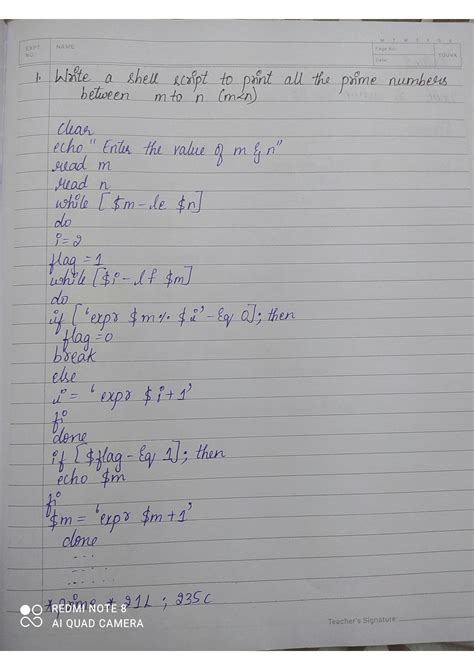 M T W T F S S
EXPT. NO.
NAME
Page No.:
Date:
YOUVA
1. Write a shell script to print all the prime numbers
between m to n (m<n)
clear
echo "Enter the value of m & n"
read m
read n
while [ $m -le $n]
do
i=2
flag = 1
while [$i - lf $m]
do
if ['expr $m % $i' - Eq 0]; then
flag=0
break
else
i = 'expr $i+1'
fi
done
if [$flag - Eq 1]; then
echo $m
fi
$m = 'expr $m+1'
done
....
....
* prime * 21L ; 235C
REDMI NOTE 8
AI QUAD CAMERA
Teacher's Signature: